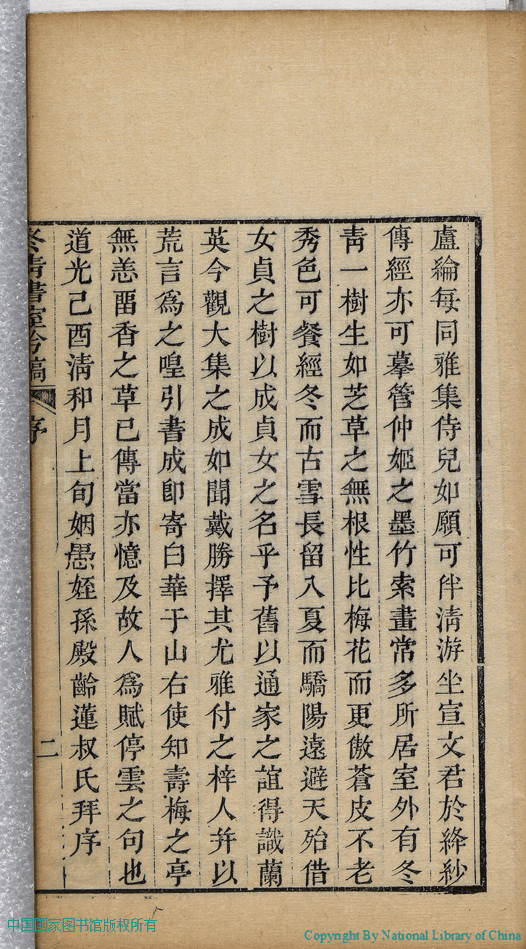 盧綸每同雅集侍兒如願可伴清游坐宣文君於絳紗
傳經亦可摹管仲姬之墨竹索畫常多所居室外有冬
靑一樹生如芝草之無根性比梅花而更傲蒼皮不老
秀色可餐經冬而古雪長留入夏而驕陽遠避天殆借
女貞之樹以成貞女之名乎予舊以通家之誼得識蘭
英今觀大集之成如聞戴勝擇其尤雅付之梓人幷以
荒言爲之喤引書成卽寄白華于山右使知壽梅之亭
無恙畱香之草已傳當亦憶及故人爲賦停雲之句也
道光己酉淸和月上旬姻愚姪孫殿齡蓮叔氏拜序
冬靑書室吟稿 序 二
中国国家图书馆版权所有
Copyright By National Library of China